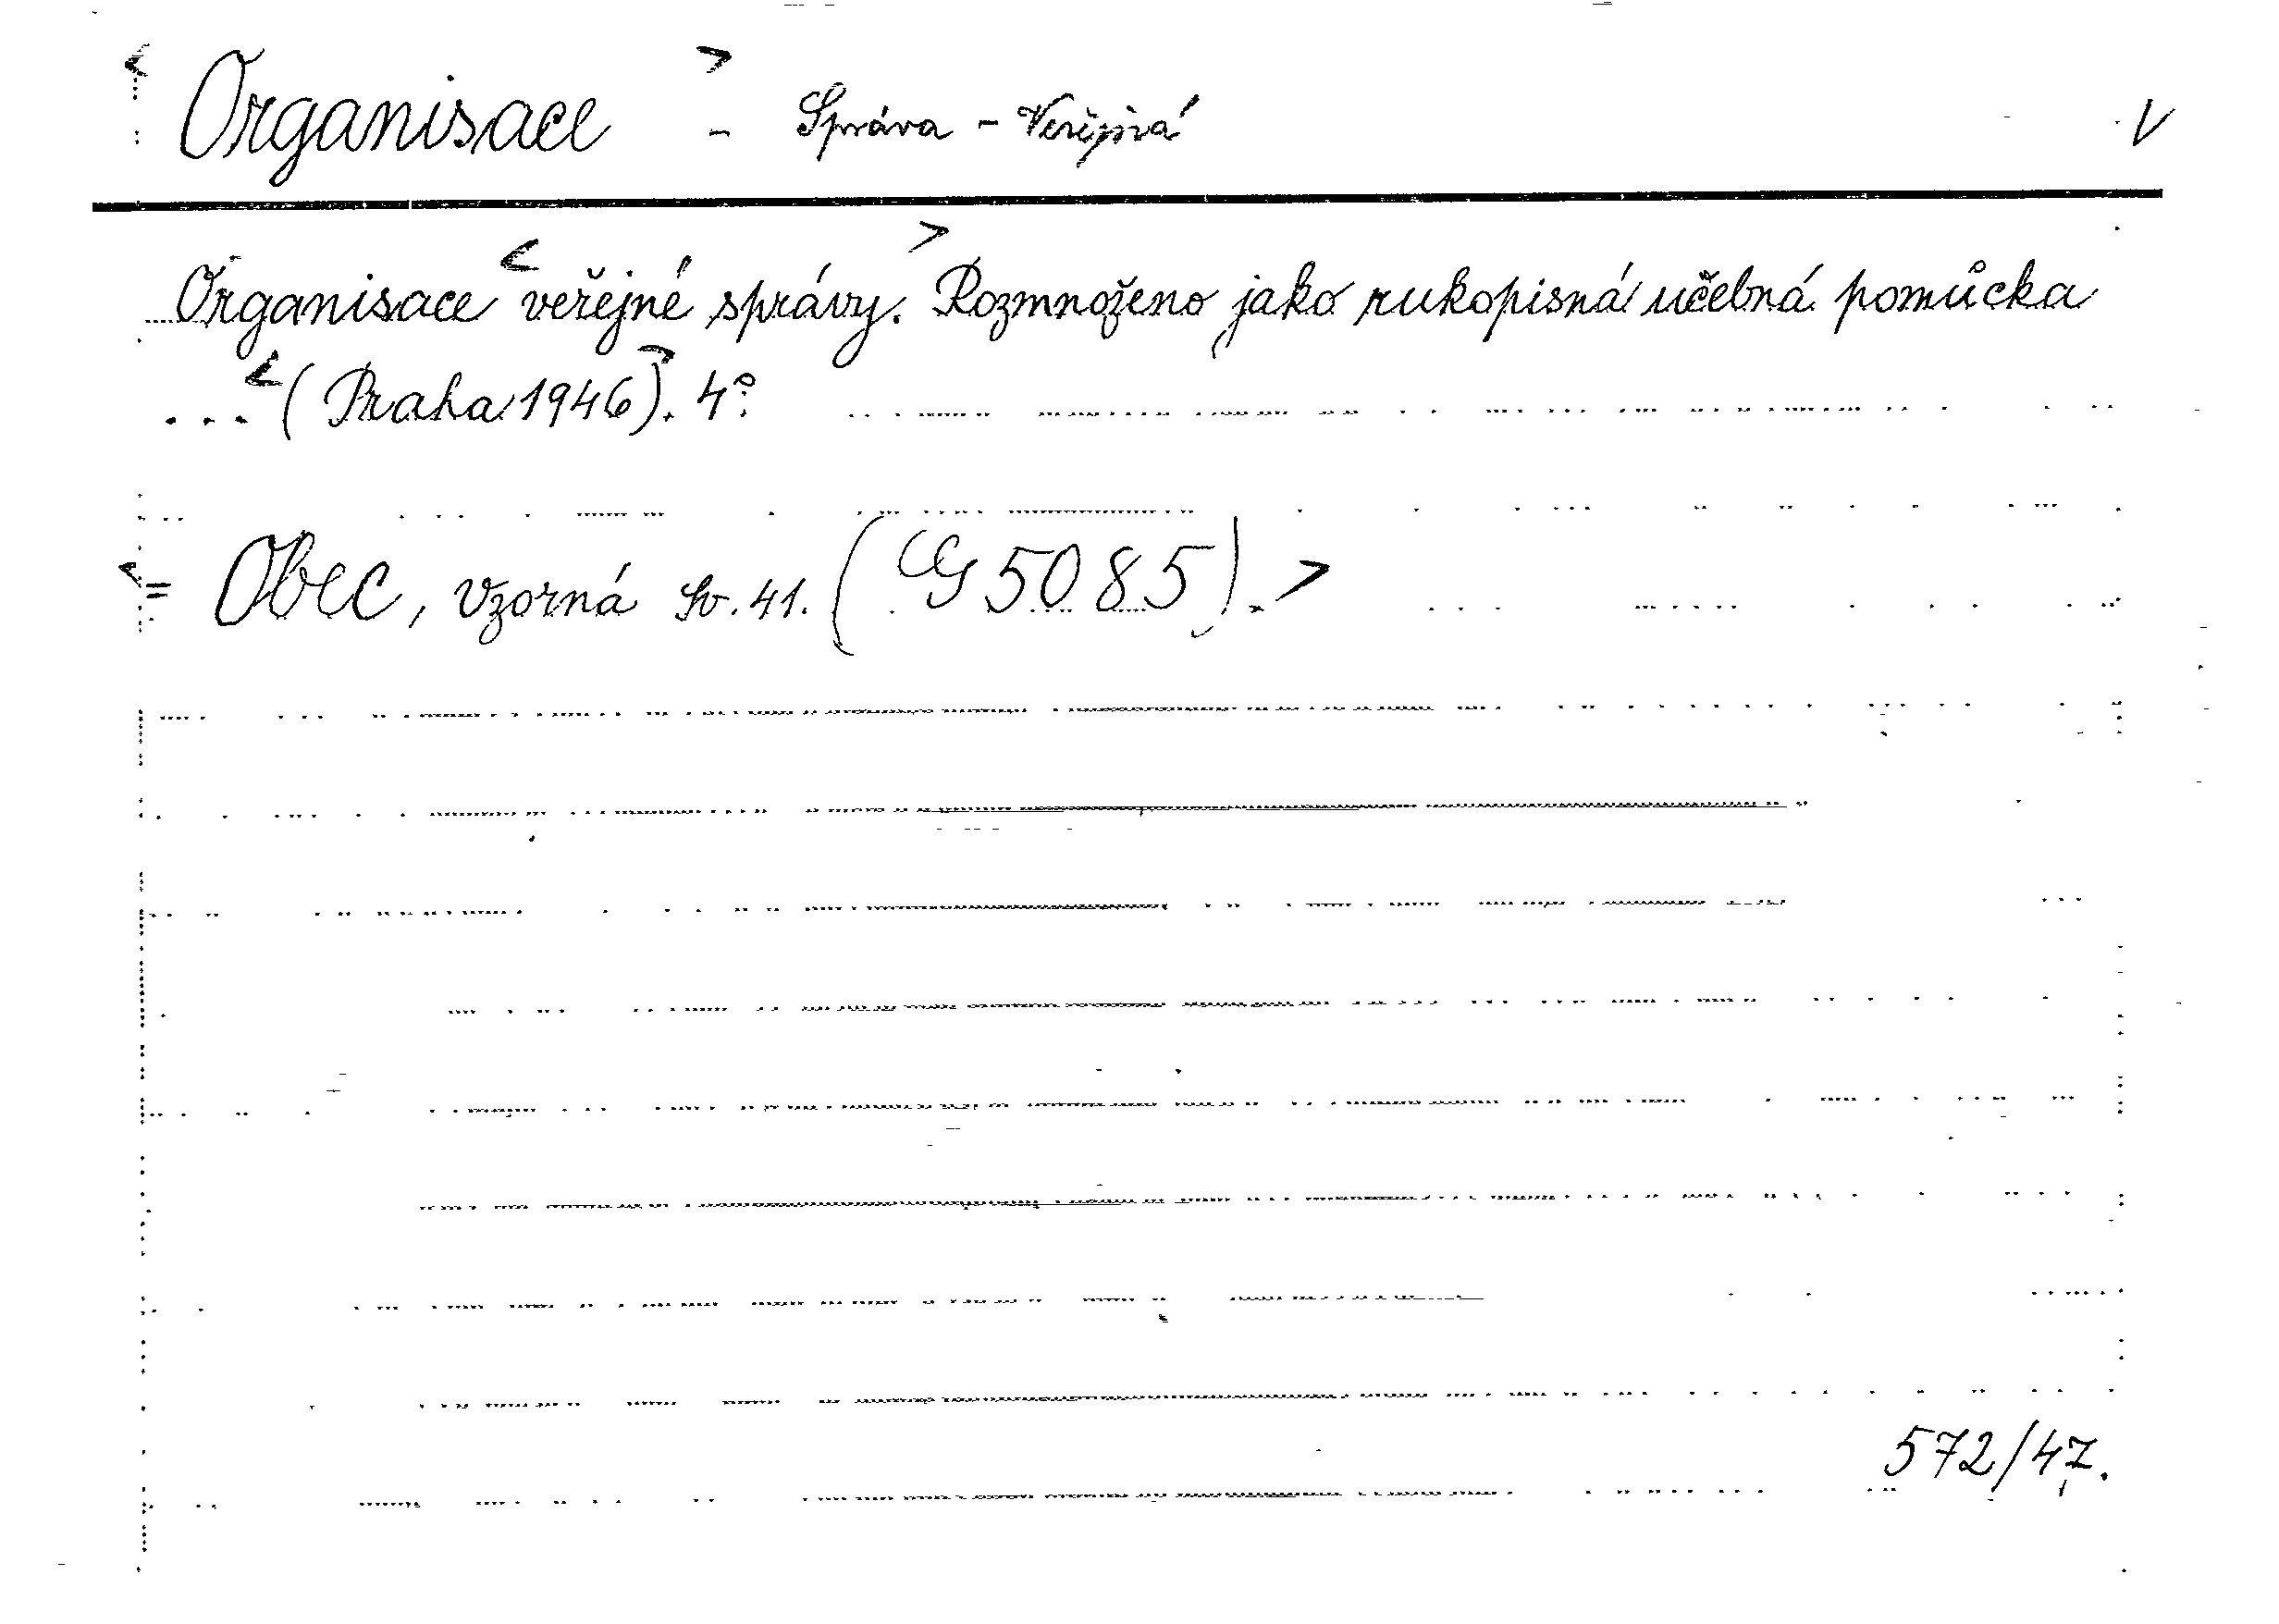 < Organisace > - Správa - Veřejná V
Organisace < veřejné správy. > Rozmnoženo jako rukopisná učebná pomůcka
... < (Praha 1946) >. 4°.
< = Obec, vzorná Sv. 41. (CG 5085). >
572/47.